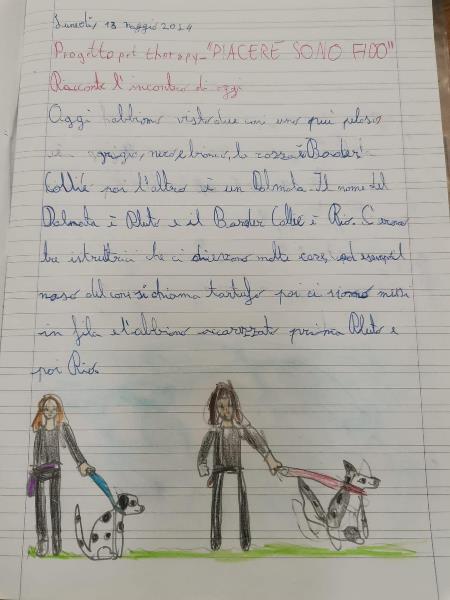 Lunedì, 13 maggio 2024
Progetto pet therapy - "PIACERE SONO FIDO"
Racconta l'incontro di oggi
Oggi abbiamo visto due cani uno più peloso
è grigio, nero e bianco, la razza è Border
Collie poi l'altro è un Dalmata. Il nome del
Dalmata è Pluto e il Border Collie è Rio. C'erano
tre istruttrici che ci dicevano molte cose, ad esempio il
naso del cane si chiama tartufo poi ci siamo messi
in fila e l'abbiamo accarezzato prima Pluto e
poi Rio.